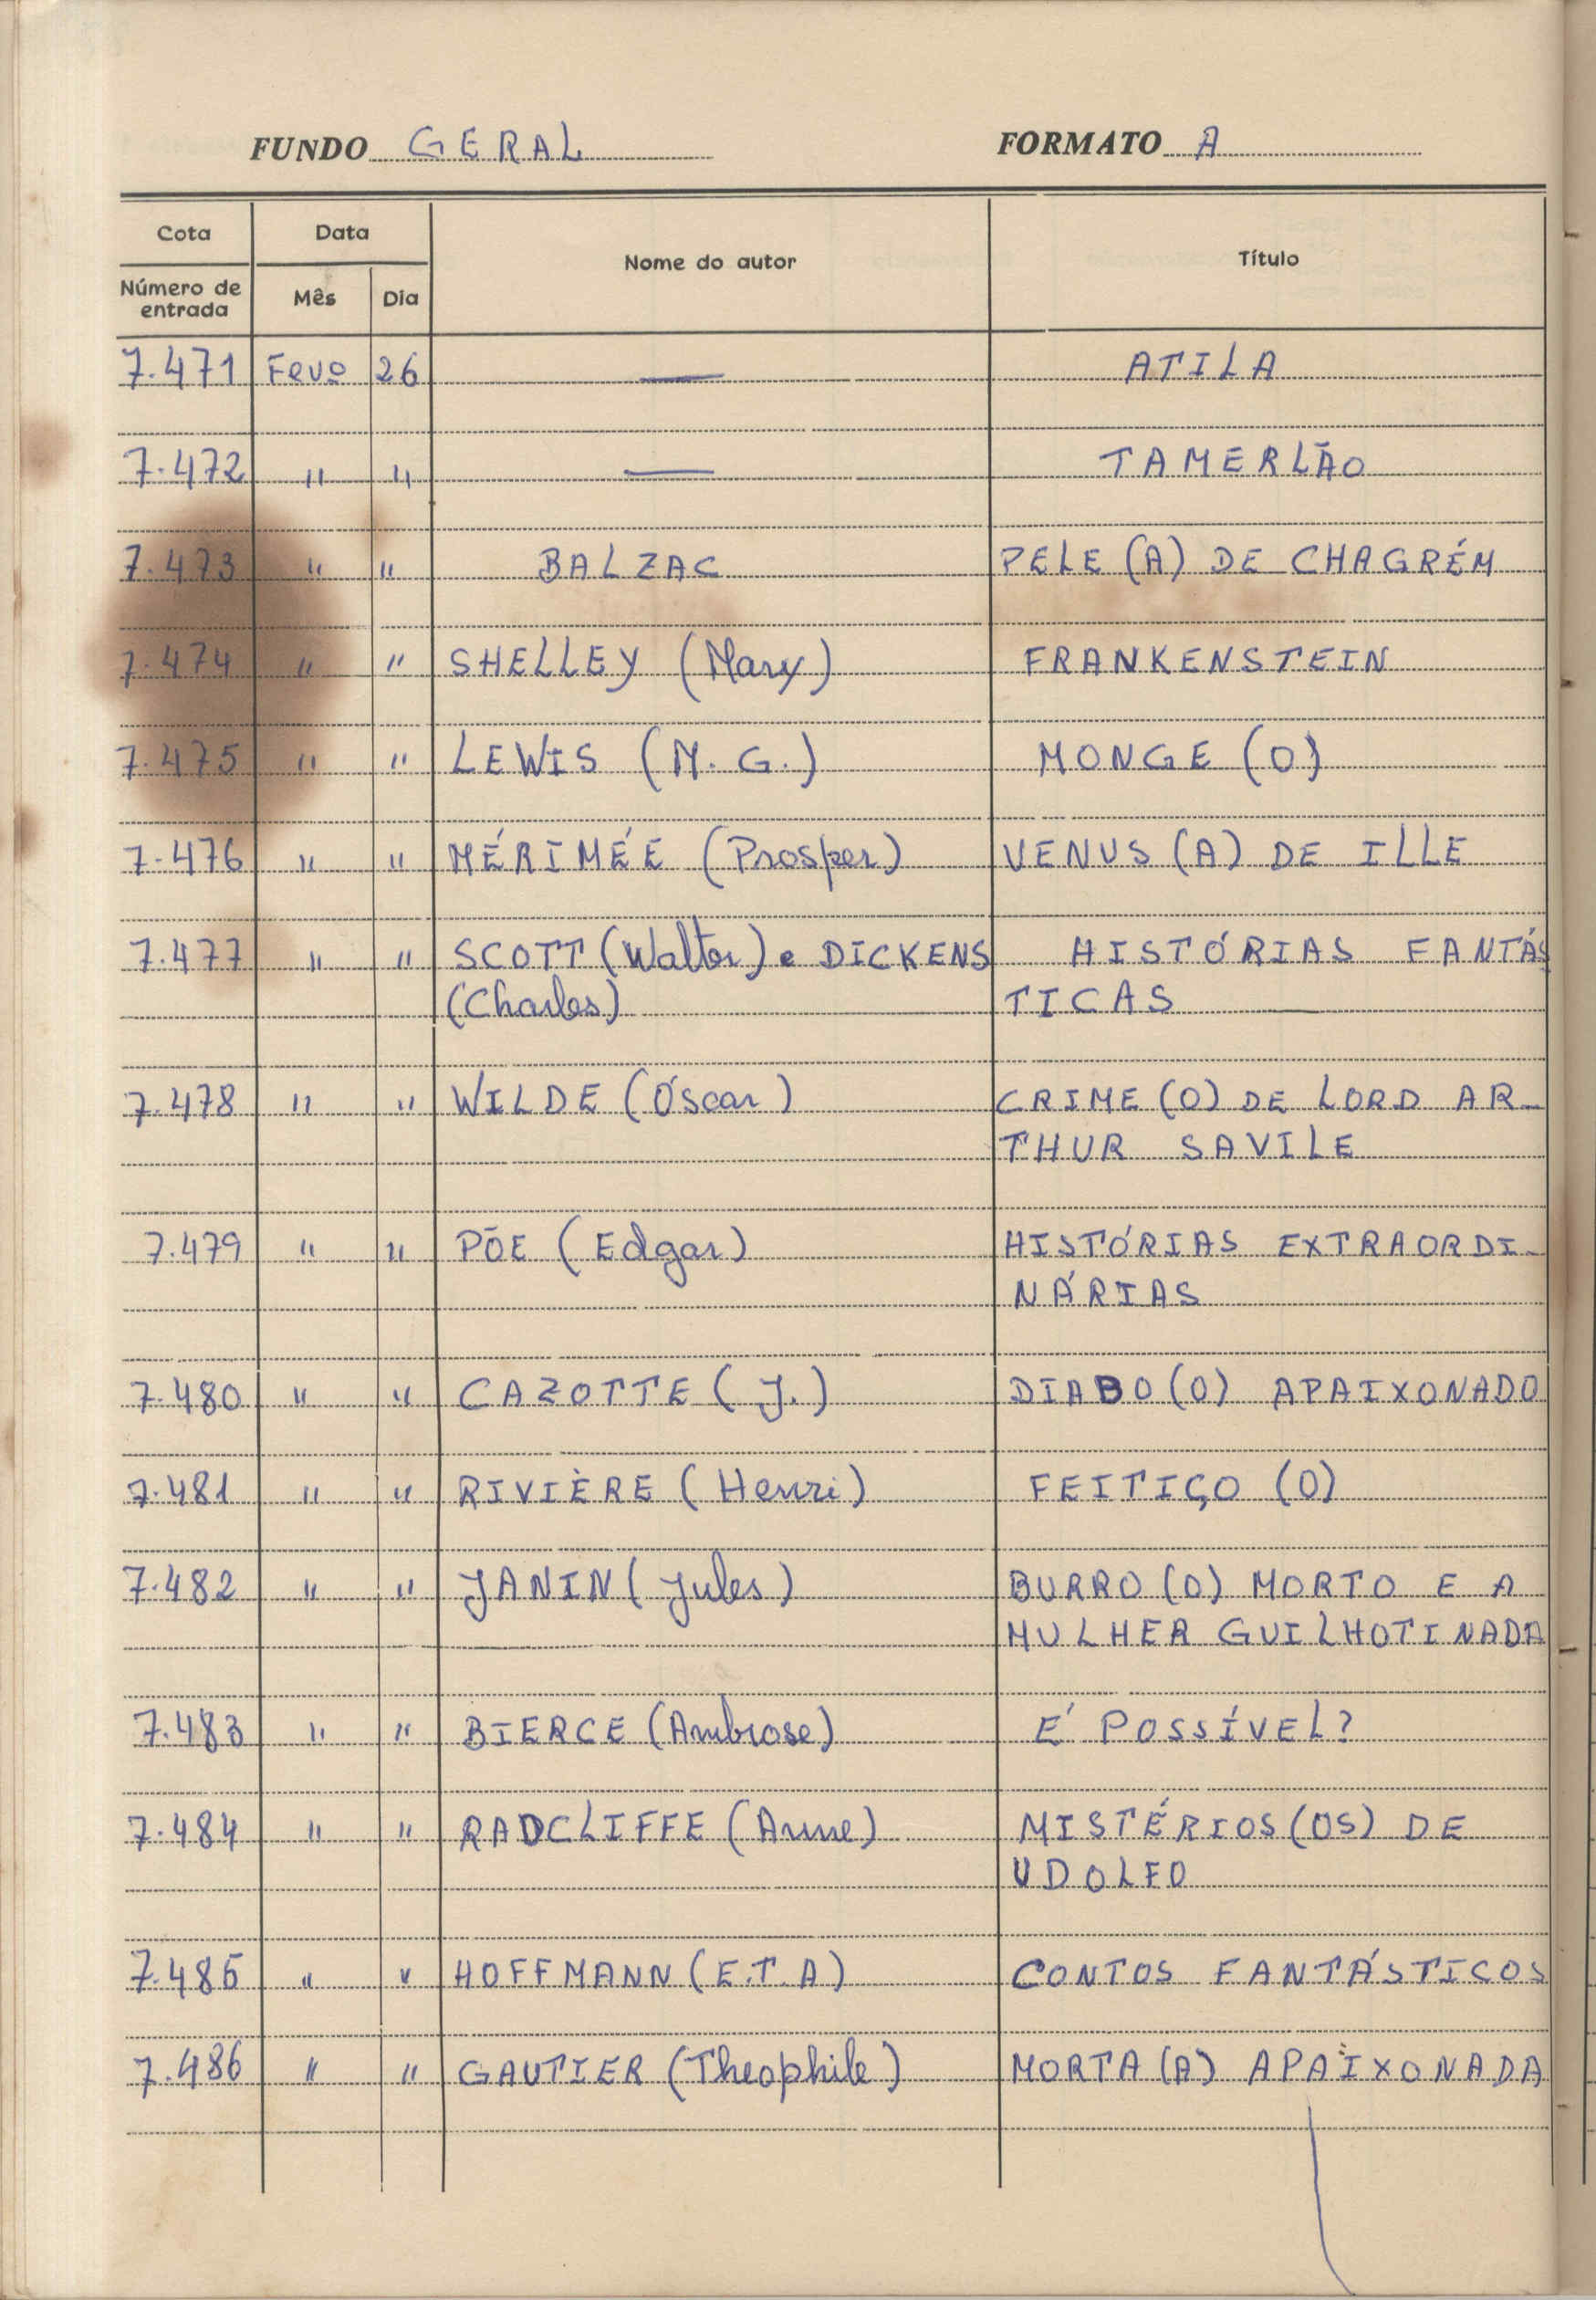 FUNDO GERAL FORMATO A
Cota Data Nome do autor Título
Número de entrada Mês Dia
7.471 Fevº 26 — ATILA
7.472 " " — TAMERLÃO
7.473 " " BALZAC PELE (A) DE CHAGRÉM
7.474 " " SHELLEY (Mary) FRANKENSTEIN
7.475 " " LEWIS (M. G.) MONGE (O)
7.476 " " MÉRIMÉE (Prosper) VENUS (A) DE ILLE
7.477 " " SCOTT (Walter) e DICKENS HISTÓRIAS FANTÁS
(Charles) TICAS
7.478 " " WILDE (Óscar) CRIME (O) DE LORD AR-
THUR SAVILE
7.479 " " PÖE (Edgar) HISTÓRIAS EXTRAORDI-
NÁRIAS
7.480 " " CAZOTTE (J.) DIABO (O) APAIXONADO
7.481 " " RIVIÈRE (Henri) FEITIÇO (O)
7.482 " " JANIN (Jules) BURRO (O) MORTO E A
MULHER GUILHOTINADA
7.483 " " BIERCE (Ambrose) É POSSÍVEL?
7.484 " " RADCLIFFE (Anne) MISTÉRIOS (OS) DE
UDOLFO
7.485 " " HOFFMANN (E.T.A) CONTOS FANTÁSTICOS
7.486 " " GAUTIER (Theophile) MORTA (A) APAIXONADA